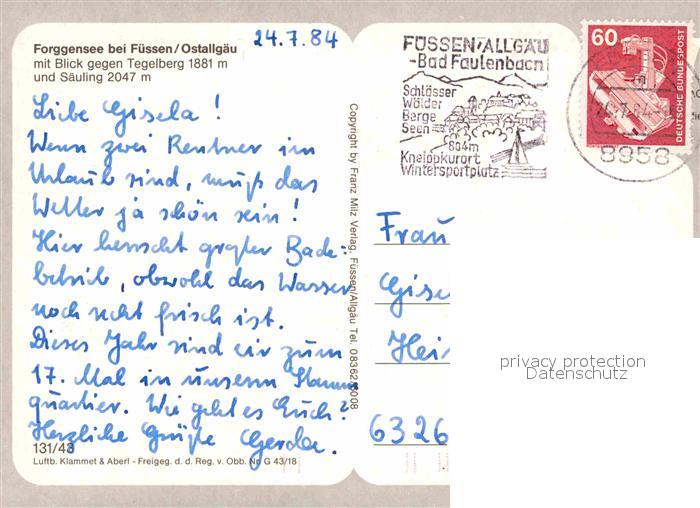 Forggensee bei Füssen/Ostallgäu
mit Blick gegen Tegelberg 1881 m
und Säuling 2047 m
24.7.84
Liebe Gisela!
Wenn zwei Rentner im
Urlaub sind, muß das
Wetter ja schön sein!
Hier herrscht großer Bade-
betrieb, obwohl das Wasser
noch recht frisch ist.
Dieses Jahr sind wir zum
17. Mal in unserm Stamm
quartier. Wie geht es Euch?
Herzliche Grüße Gerda.
131/43
Luftb. Klammet & Aberl - Freigeg. d. d. Reg. v. Obb. Nr. G 43/18
Copyright by Franz Milz Verlag, Füssen/Allgäu Tel. 08362/
FÜSSEN/ALLGÄU
-Bad Faulenbach
Schlösser
Wälder
Berge
Seen
804m
Kneippkurort
Wintersportplatz
60
DEUTSCHE BUNDESPOST
8958
Frau
Gise
Hei
6326
privacy protection
Datenschutz